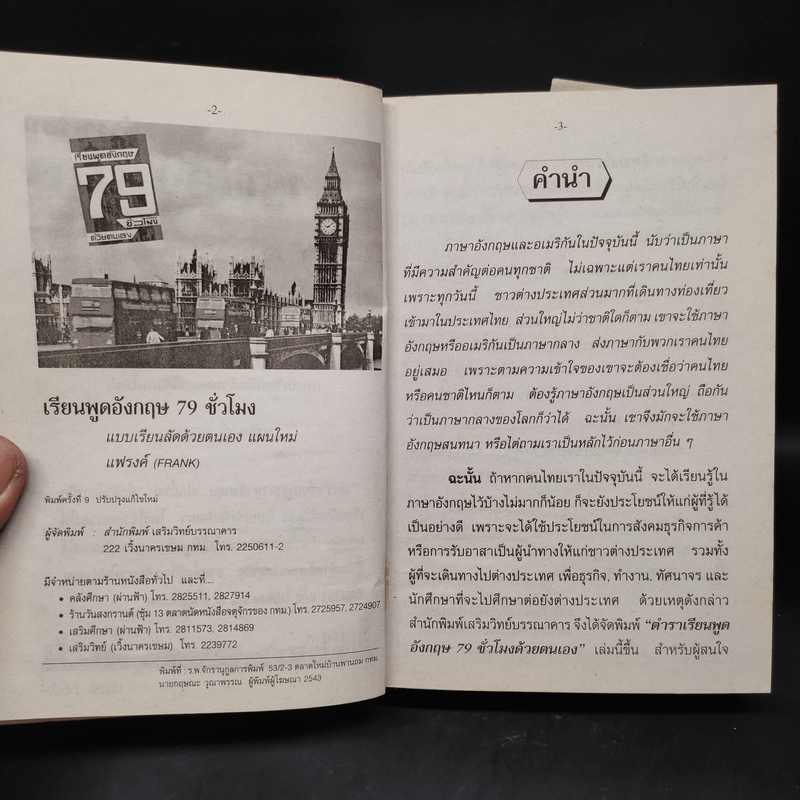 -2-
เรียนพูดอังกฤษ
79
ชั่วโมง
ด้วยตนเอง
เรียนพูดอังกฤษ 79 ชั่วโมง
แบบเรียนลัดด้วยตนเอง แผนใหม่
แฟรงค์ (FRANK)
พิมพ์ครั้งที่ 9 ปรับปรุงแก้ไขใหม่
ผู้จัดพิมพ์ : สำนักพิมพ์ เสริมวิทย์บรรณาคาร
222 เวิ้งนาครเขษม กทม. โทร. 2250611-2
มีจำหน่ายตามร้านหนังสือทั่วไป และที่....
• คลังศึกษา (ผ่านฟ้า) โทร. 2825511, 2827914
• ร้านวันสงกรานต์ (ซุ้ม 13 ตลาดนัดหนังสือจตุจักรของ กทม.) โทร. 2725957, 2724907
• เสริมศึกษา (ผ่านฟ้า) โทร. 2811573, 2814869
• เสริมวิทย์ (เวิ้งนาครเขษม) โทร. 2239772
พิมพ์ที่ : ร.พ.จักรานุกูลการพิมพ์ 53/2-3 ตลาดใหม่บ้านพานถม กทม.
นายกฤษณะ วุณาพรรณ ผู้พิมพ์ผู้โฆษณา 2543
-3-
คำนำ
ภาษาอังกฤษและอเมริกันในปัจจุบันนี้ นับว่าเป็นภาษา
ที่มีความสำคัญต่อคนทุกชาติ ไม่เฉพาะแต่เราคนไทยเท่านั้น
เพราะทุกวันนี้ ชาวต่างประเทศส่วนมากที่เดินทางท่องเที่ยว
เข้ามาในประเทศไทย ส่วนใหญ่ไม่ว่าชาติใดก็ตาม เขาจะใช้ภาษา
อังกฤษหรืออเมริกันเป็นภาษากลาง ส่งภาษากับพวกเราคนไทย
อยู่เสมอ เพราะตามความเข้าใจของเขาจะต้องเชื่อว่าคนไทย
หรือคนชาติไหนก็ตาม ต้องรู้ภาษาอังกฤษเป็นส่วนใหญ่ ถือกัน
ว่าเป็นภาษากลางของโลกก็ว่าได้ ฉะนั้น เขาจึงมักจะใช้ภาษา
อังกฤษสนทนา หรือไต่ถามเราเป็นหลักไว้ก่อนภาษาอื่น ๆ
ฉะนั้น ถ้าหากคนไทยเราในปัจจุบันนี้ จะได้เรียนรู้ใน
ภาษาอังกฤษไว้บ้างไม่มากก็น้อย ก็จะยังประโยชน์ให้แก่ผู้ที่รู้ได้
เป็นอย่างดี เพราะจะได้ใช้ประโยชน์ในการสังคมธุรกิจการค้า
หรือการรับอาสาเป็นผู้นำทางให้แก่ชาวต่างประเทศ รวมทั้ง
ผู้ที่จะเดินทางไปต่างประเทศ เพื่อธุรกิจ, ทำงาน, ทัศนาจร และ
นักศึกษาที่จะไปศึกษาต่อยังต่างประเทศ ด้วยเหตุดังกล่าว
สำนักพิมพ์เสริมวิทย์บรรณาคาร จึงได้จัดพิมพ์ "ตำราเรียนพูด
อังกฤษ 79 ชั่วโมงด้วยตนเอง" เล่มนี้ขึ้น สำหรับผู้สนใจ